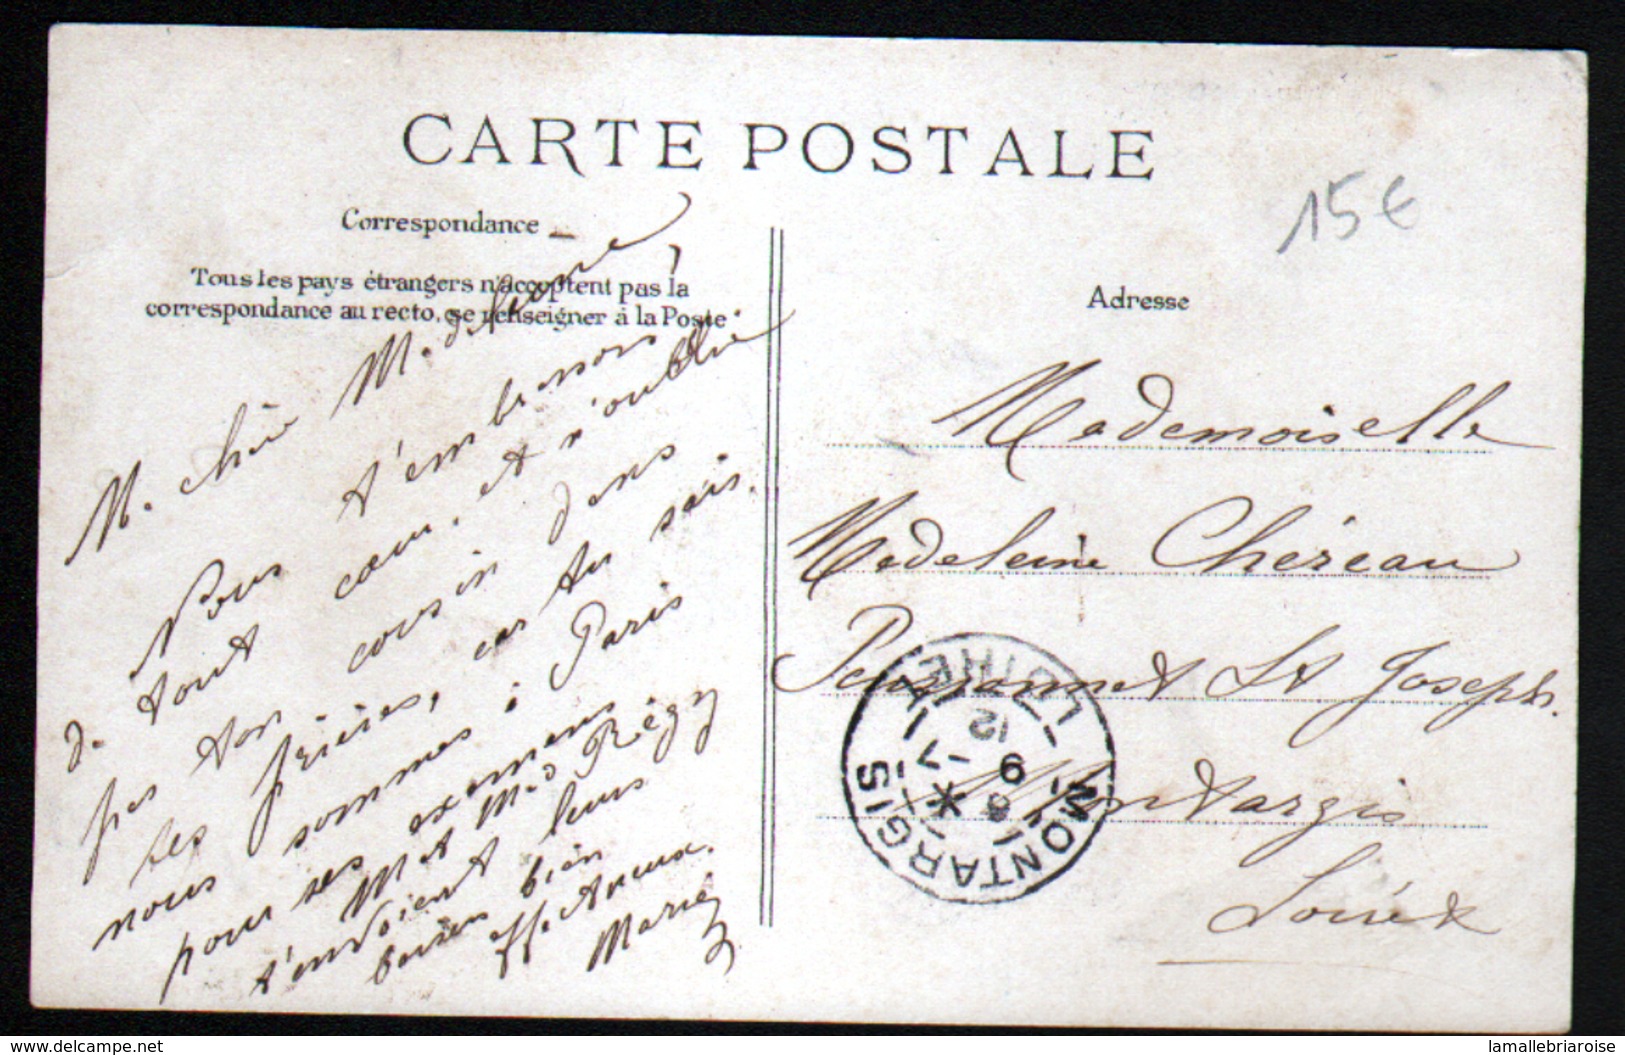 CARTE POSTALE
15€
Correspondance
Tous les pays étrangers n'acceptent pas la
correspondance au recto, se renseigner à la Poste
M. chère Madeleine,
Nous t'embrassons
de tout cœur, et n'oublie
pas ton cousin dans
tes prières, car tu sais.
nous sommes à Paris
pour ses examens
M et Md Régy
t'envoient leurs
baisers bien
affectueux.
Marie
Adresse
Mademoiselle
Madeleine Chéreau
Pensionnat St Joseph.
Montargis
Loiret
MONTARGIS
LOIRET
12
9
www.delcampe.net
lamallebriaroise